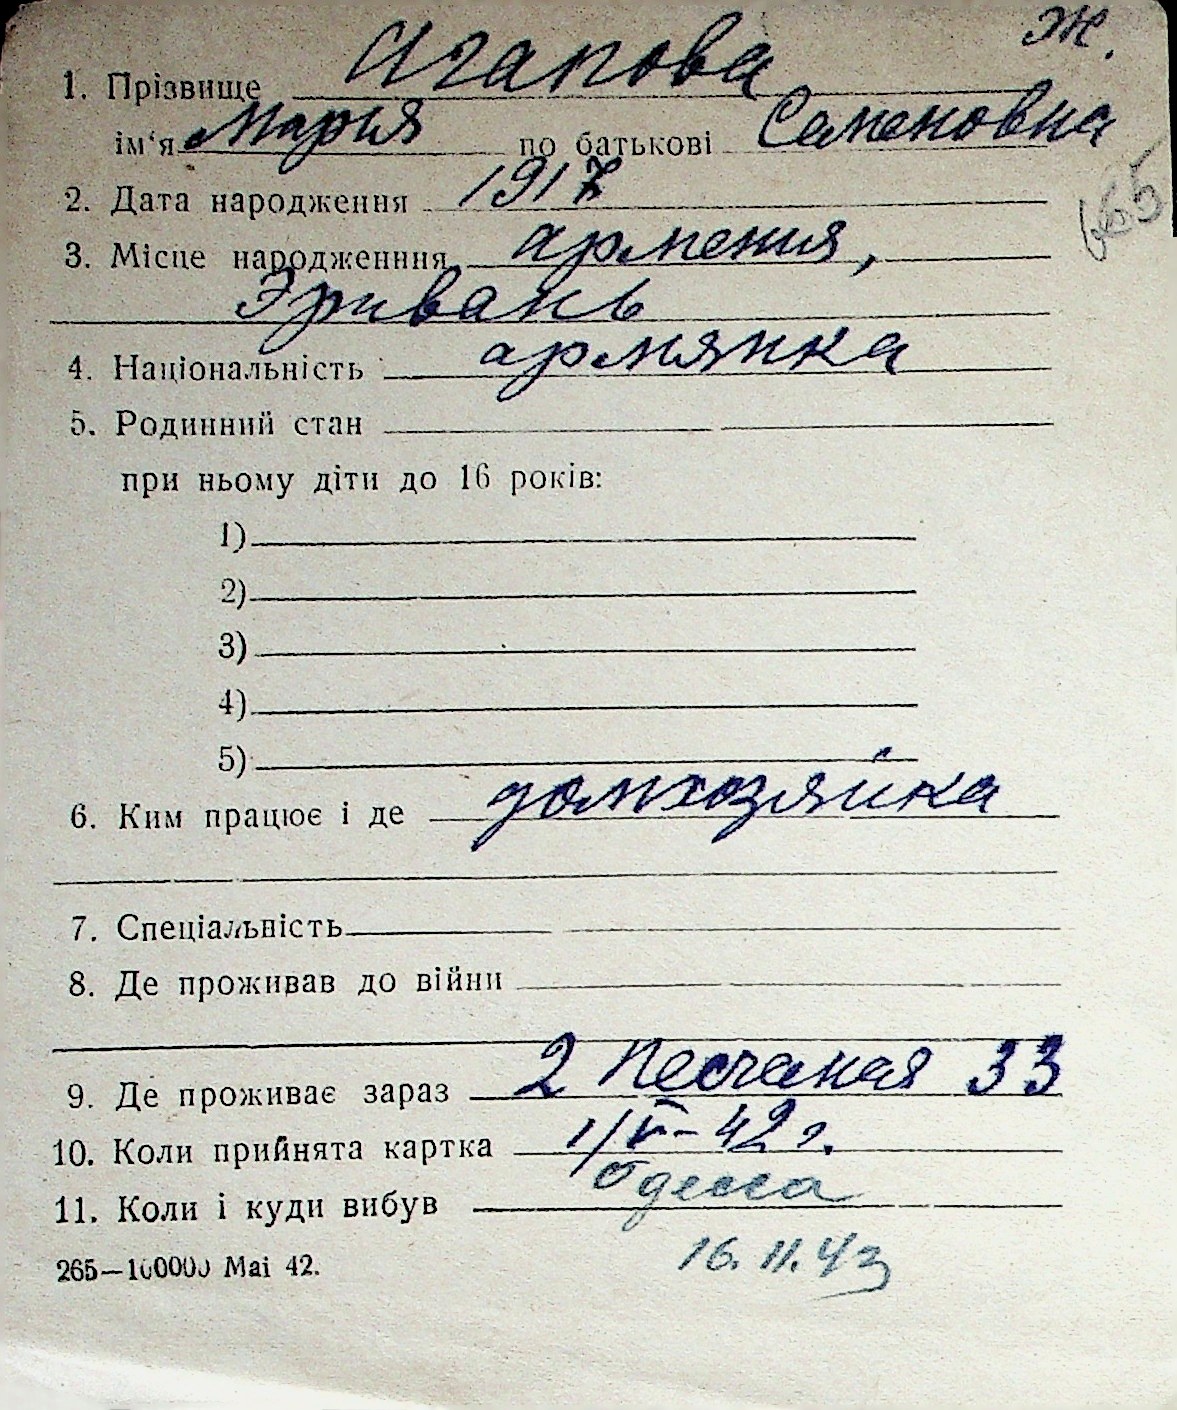 ж.
1. Прізвище Агапова
ім'я Мария по батькові Семеновна
2. Дата народження 1917
665
3. Місце народженння Армения,
Эривань
4. Національність армянка
5. Родинний стан
при ньому діти до 16 років:
1)
2)
3)
4)
5)
6. Ким працює і де домхозяйка
7. Спеціальність
8. Де проживав до війни
9. Де проживає зараз 2 Песчаная 33
10. Коли прийнята картка 1/V-42 г.
11. Коли і куди вибув Одесса
265—100000 Маі 42. 16.11.43